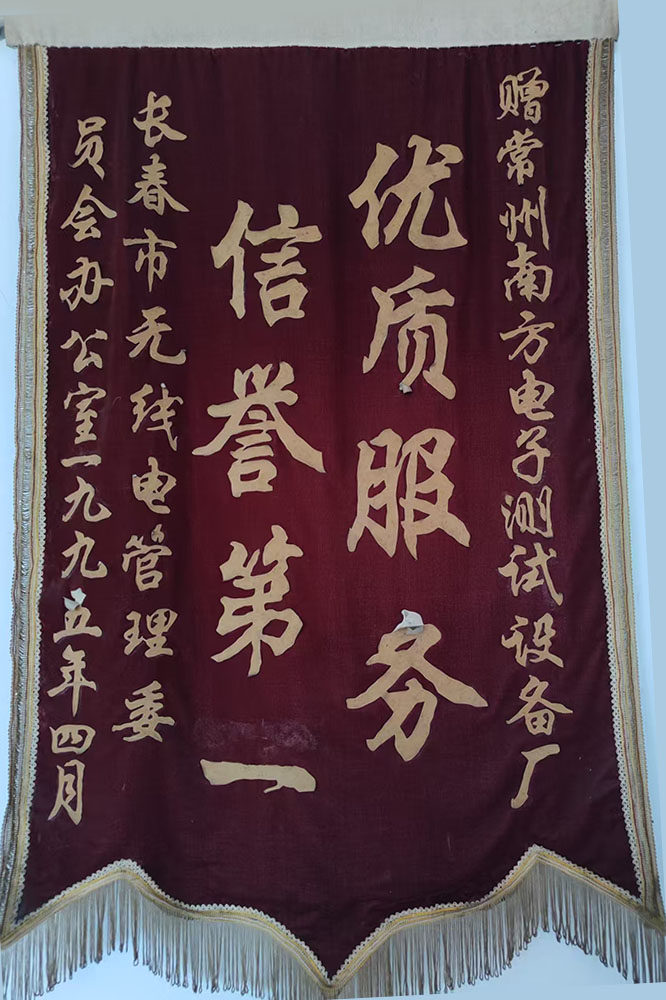 赠常州南方电子测试设备厂
优质服务
信誉第一
长春市无线电管理委
员会办公室一九九五年四月